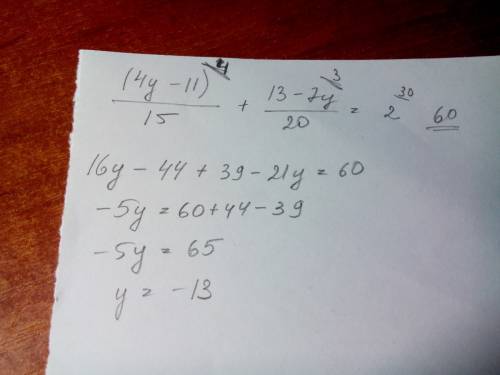 (4y - 11) ⁴/15 + 13 - 7y ³/20 = 2 ³⁰ 60
16y - 44 + 39 - 21y = 60
-5y = 60 + 44 - 39
-5y = 65
y = -13